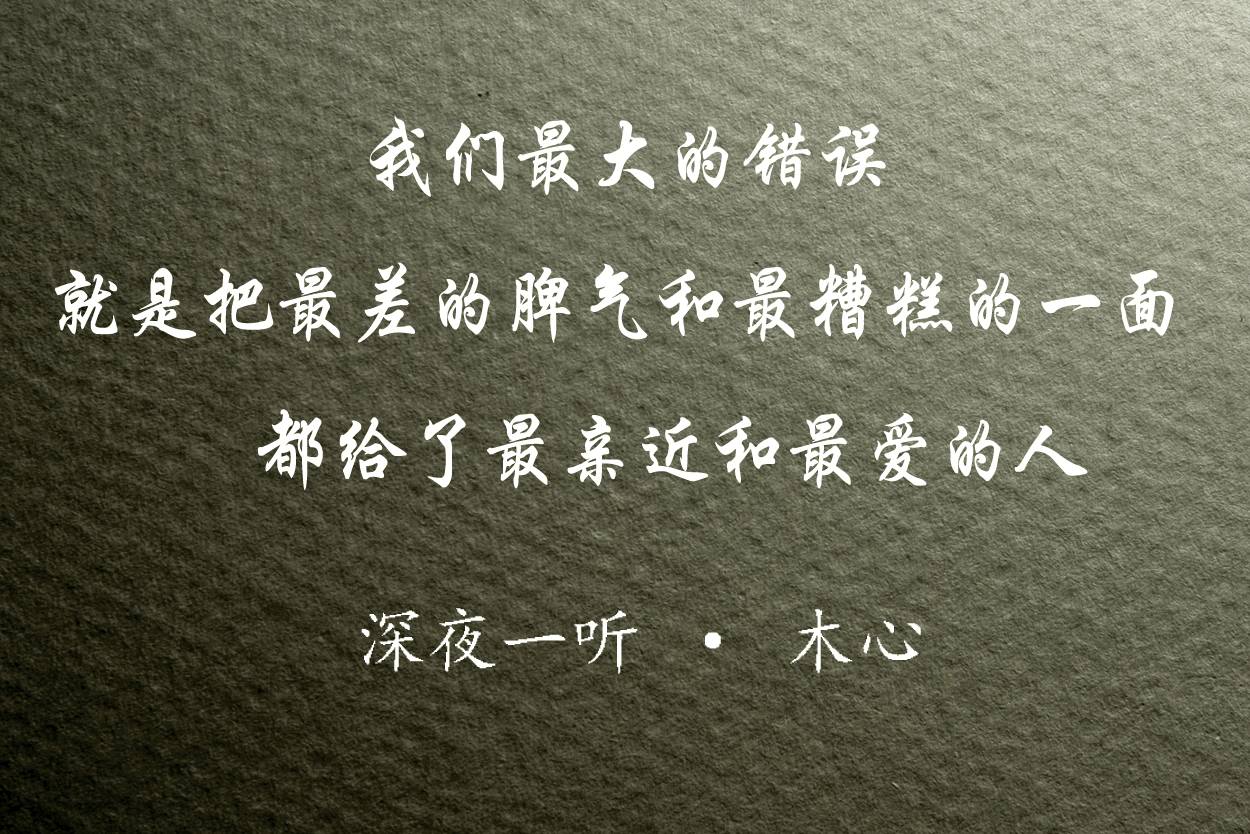 我们最大的错误
就是把最差的脾气和最糟糕的一面
都给了最亲近和最爱的人
深夜一听 · 木心